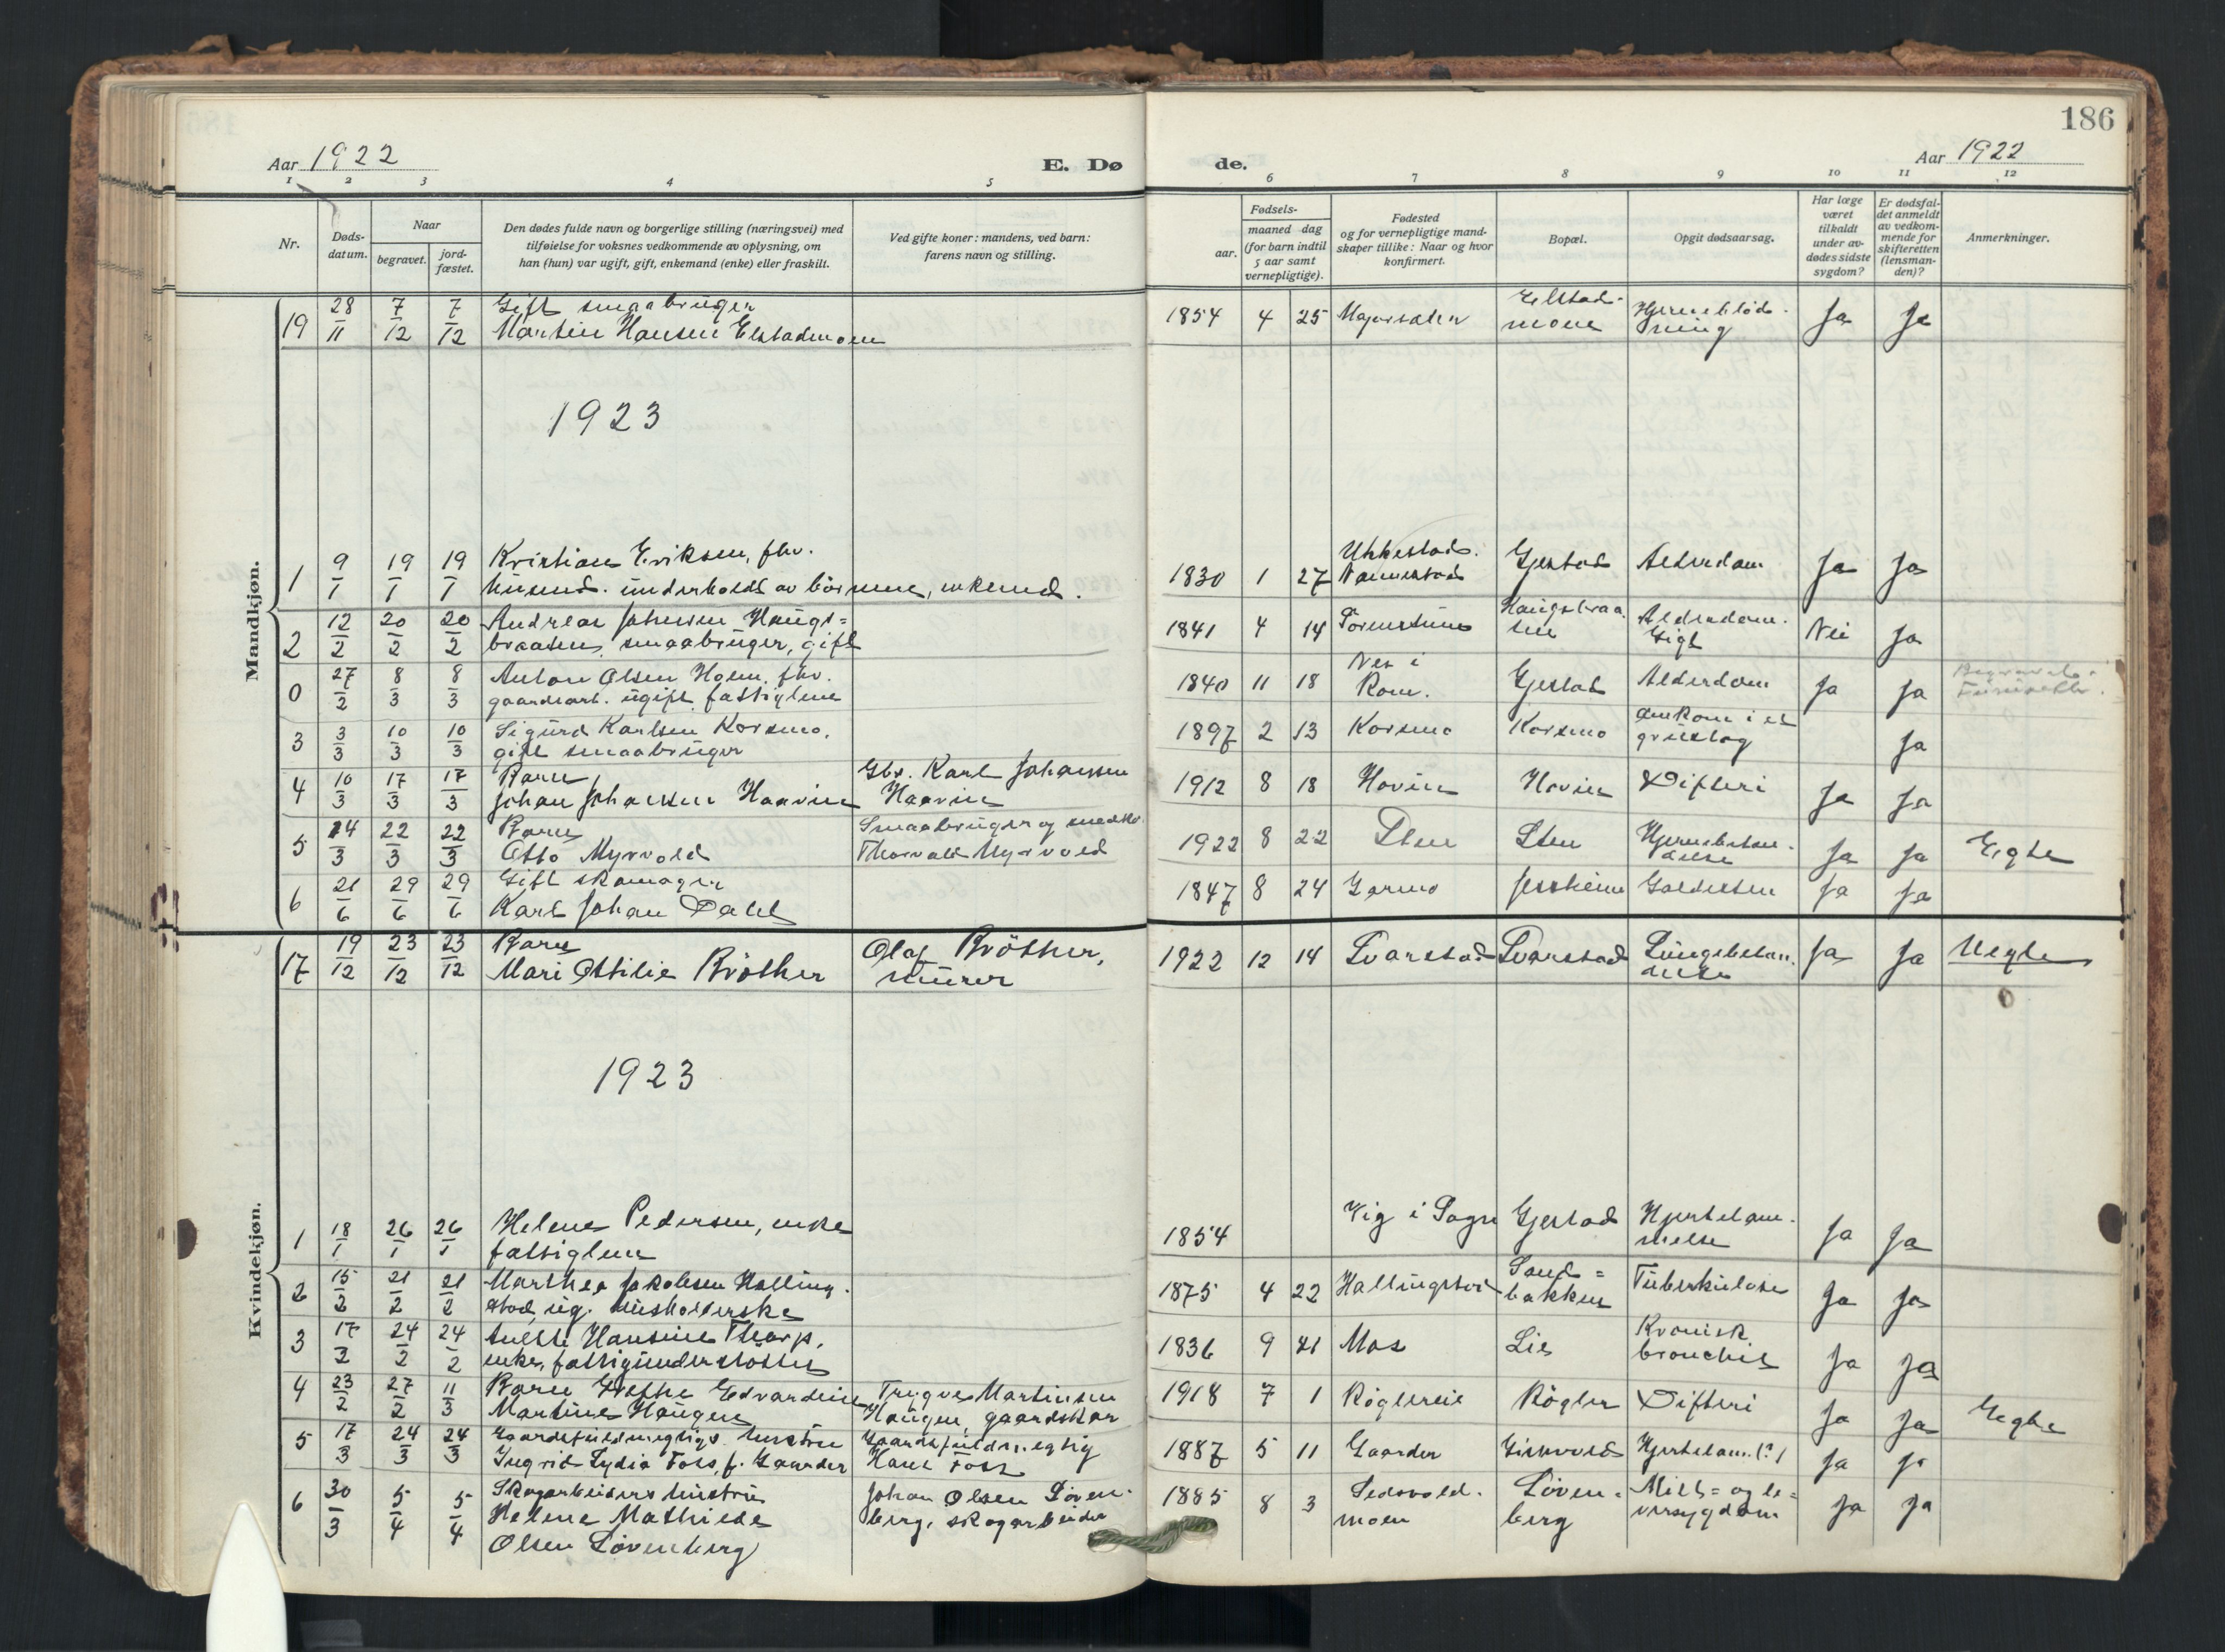 186
Aar 1922
E. Dø
de.
Aar 1922
1 2 3 4 5
6 7 8 9 10 11 12
Nr.
Døds-
datum.
Naar
begravet.
jord-
fæstet.
Den dødes fulde navn og borgerlige stilling (næringsvei) med
tilføielse for voksnes vedkommende av oplysning, om
han (hun) var ugift, gift, enkemand (enke) eller fraskilt.
Ved gifte koner: mandens, ved barn:
farens navn og stilling.
Fødsels-
aar.
maaned dag
(for barn indtil
5 aar samt
vernepligtige).
Fødested
og for vernepligtige mand-
skaper tillike: Naar og hvor
konfirmert.
Bopæl.
Opgit dødsaarsag.
Har læge
været
tilkaldt
under av-
dødes sidste
sygdom?
Er dødsfal-
det anmeldt
av vedkom-
mende for
skifteretten
(lensman-
den)?
Anmerkninger.
Mandkjøn.
19 28/11 7/12 7/12 Gift smaabruger
Martin Hansen Elstadmoen
1854 4 25 Elstad-
moen Hjerneblød-
ning Ja Ja
1923
1 9/1 19/1 19/1 Kristian Eriksen, fhv.
husmd. underholdt av børnene, enkemd.
1830 1 27 Ukkestad.
Nannestad Gjestad Alderdom Ja Ja
2 12/2 20/2 20/2 Andreas Johnsen Haugs=
braaten, smaabruger, gift
1841 4 14 Haugsbraa-
ten Alderdom.
Gigt Nei Ja
0 27/2 8/3 8/3 Anton Olsen Holm, fhv.
gaardsarb. ugift fattiglem
1840 11 18 Nes i
Rom. Gjestad Alderdom Ja Ja
3 3/3 10/3 10/3 Sigurd Karlsen Korsmo,
gift smaabruger
1897 2 13 Korsmo Korsmo Omkom i et
grustag Ja
4 10/3 17/3 17/3 Barn
Johan Johansen Haavin
Gbr. Karl Johansen
Haavin
1912 8 18 Hovin Hovin Difteri Ja Ja
5 14/3 22/3 22/3 Barn
Otto Myrvold
Smaabruger og
Thorvald Myrvold
1922 8 22 Sten Sten Hjernebeten-
delse Ja Ja Egte
6 21/6 29/6 29/6 Gift skomager
Karl Johan Dahl
1847 8 24 Garmo Jessheim Galdesten Ja Ja
Kvindekjøn.
17 19/12 23/12 23/12 Barn
Mari Ottilie Bröther
Olaf Bröther,
murer
1922 12 14 Tvarstad Tvarstad Lungebetæn-
delse Ja Ja Uegte
1923
1 18/1 26/1 26/1 Helene Pedersen, enke
fattiglem
1854 Vig i Sogn Gjestad Hjertelam-
melse Ja Ja
2 15/2 21/2 21/2 Marthea Jakobsen Halling-
stad, ug. husholderske
1875 4 22 Hallingstad Sand=
bakken Tuberkulose Ja Ja
3 17/2 24/2 24/2 Anette Hansine Thorp,
enke, fattigunderstøttet
1836 9 21 Mos Lie Kronisk
bronchit Ja Ja
4 23/2 27/2 11/3 Barn Grethe Edvardine
Martine Haugen
Trygve Martinsen
Haugen, gaardskar
1918 7 1 Røglereie Røgler Difteri Ja Ja Uegte
5 17/3 24/3 24/3 Gaardsfuldmegtigs hustru
Ingrid Lydia Foss, f. Gaarder
Gaardsfuldmegtig
Hans Foss
1887 5 11 Gaarder Hjertelam. (?) Ja Ja
6 30/3 5/4 5/4 Skogarbeiders hustru
Helene Mathilde
Olsen Løvenberg
Johan Olsen Løven-
berg, skogarbeider
1885 8 3 Sedsvold-
moen Løven-
berg Milt= og le=
versygdom Ja Ja